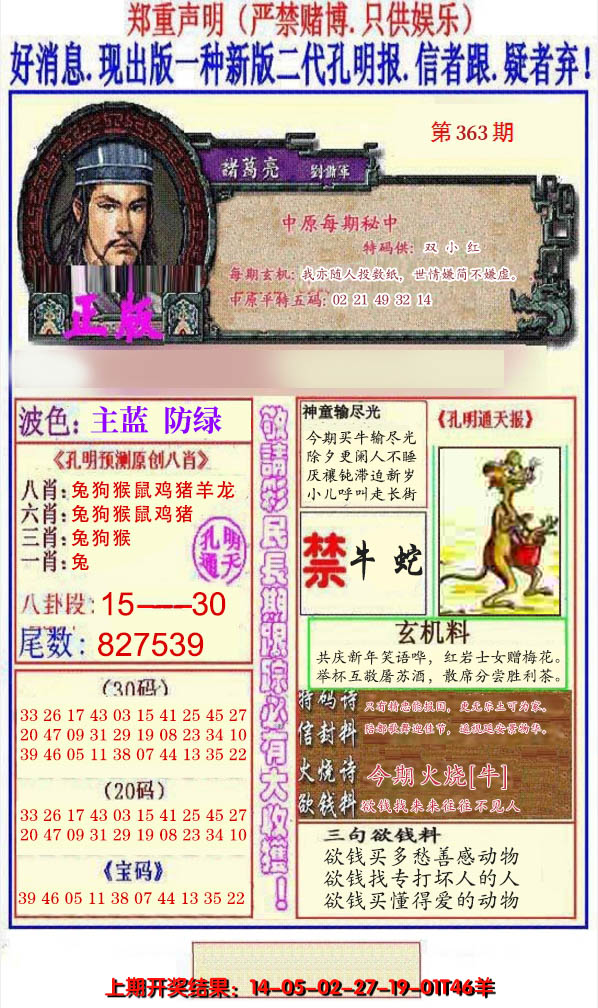 郑重声明（严禁赌博.只供娱乐）
好消息.现出版一种新版二代孔明报.信者跟.疑者弃!
第363期
諸葛亮 劉備軍
中原每期秘中
特码供: 双 小 红
每期玄机: 我亦随人投数纸，世情嫌简不嫌虚。
中原平特五码: 02 21 49 32 14
正版
波色: 主蓝 防绿
《孔明预测原创八肖》
八肖: 兔狗猴鼠鸡猪羊龙
六肖: 兔狗猴鼠鸡猪
三肖: 兔狗猴
一肖: 兔
孔明
通天
八卦段: 15——30
尾数: 827539
（30码）
33 26 17 43 03 15 41 25 45 27
20 47 09 31 29 19 08 23 34 10
39 46 05 11 38 07 44 13 35 22
（20码）
33 26 17 43 03 15 41 25 45 27
20 47 09 31 29 19 08 23 34 10
《宝码》
39 46 05 11 38 07 44 13 35 22
敬請彩民長期跟踪必有大收獲！
神童输尽光
今期买牛输尽光
除夕更阑人不睡
厌禳钝滞迫新岁
小儿呼叫走长街
《孔明通天报》
禁 牛 蛇
玄机料
共庆新年笑语哗，红岩士女赠梅花。
举杯互敬屠苏酒，散席分尝胜利茶。
特码诗
只有精忠能报国，更无乐土可为家。
信封料
陪都歌舞迎佳节，遥祝延安景物华。
火烧诗 今期火烧[牛]
欲钱料 欲钱找来来往往不见人
三句欲钱料
欲钱买多愁善感动物
欲钱找专打坏人的人
欲钱买懂得爱的动物
上期开奖结果：14-05-02-27-19-01T46羊